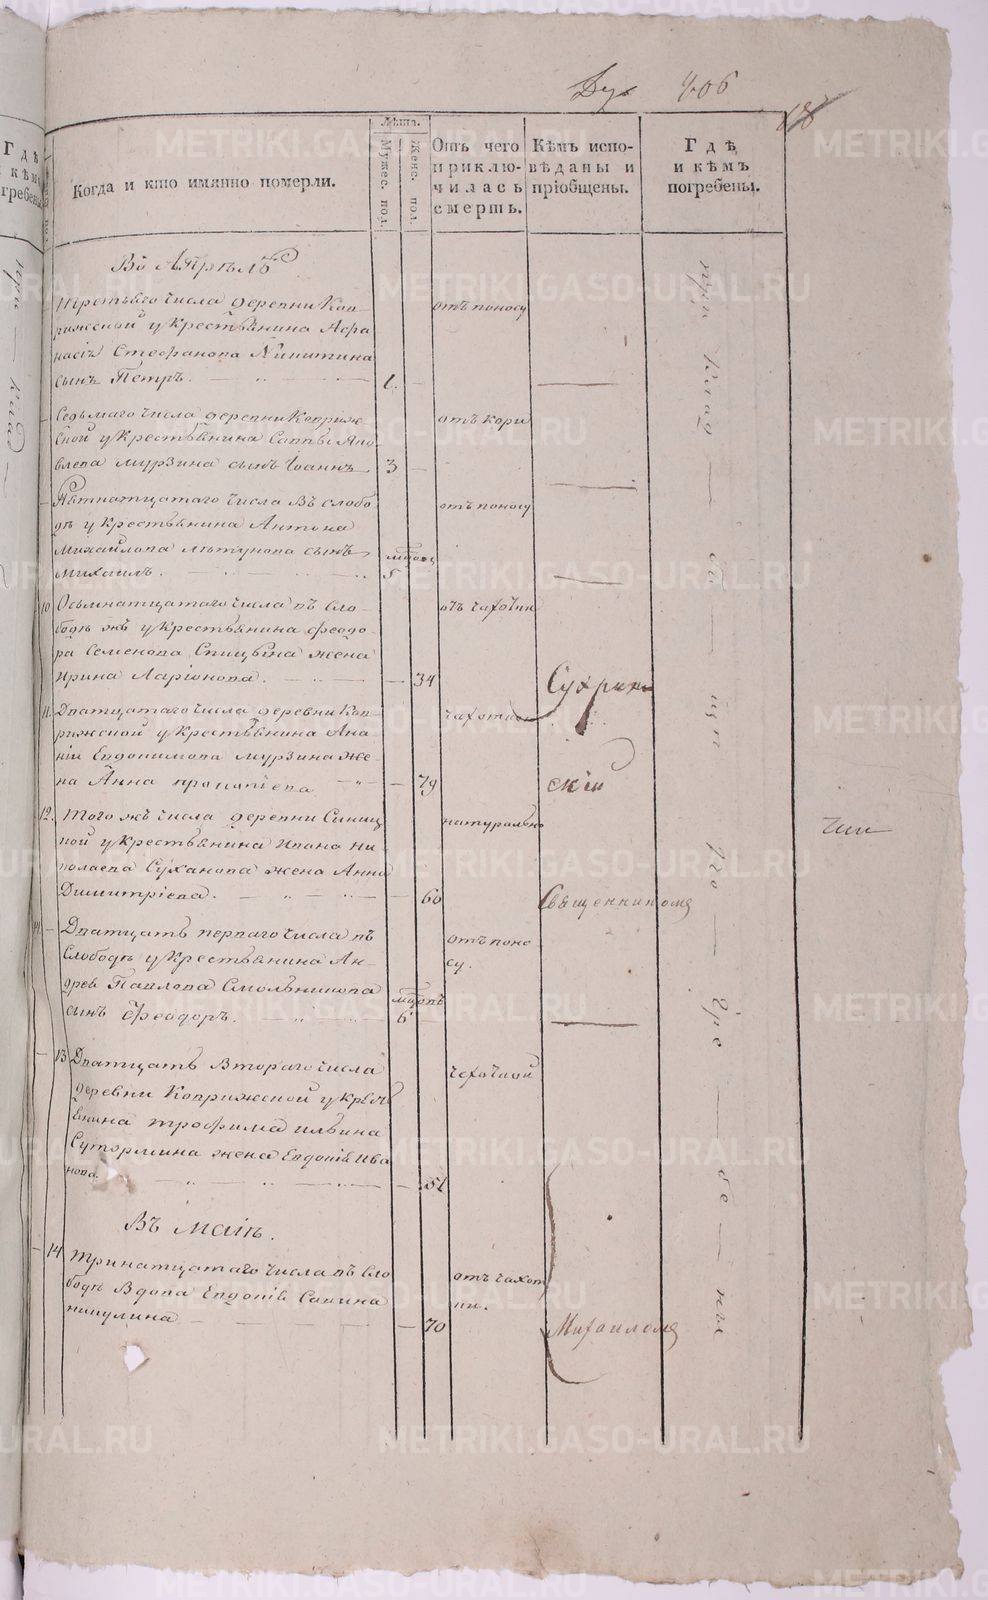 Дух 406
Когда и кто имянно померли.
Лѣта.
Мужес. пол.
Женс. пол.
Отъ чего приклю-
чилась смерть.
Кѣмъ испо-
вѣданы и
пріобщены.
Гдѣ
и кѣмъ
погребены.
Въ Апрѣлѣ
третьяго числа деревни Коп-
рижской у Крестьянина Афа
насія Стефанова Никитина
сынъ Петръ. 1.
отъ поносу
Седьмаго числа деревни Коприж-
ской у Крестьянина Саввы Яко
влева Мурзина сынъ Іоаннъ 3
отъ кори
Пятнатцатаго числа въ слобо
дѣ у Крестьянина Антона
Михайлова Лѣтунова сынъ
Михаилъ. 5
отъ поносу
10 Осьмнатцатаго числа въ Сло-
бодѣ жъ у Крестьянина Феодо-
ра Семенова Спицына жена
Ирина Ларіонова. 34
отъ чахотки
11. Дватцатаго числа деревни Коп-
рижской у Крестьянина Ана
ніи Евдокимова Мурзина же-
на Анна Прокопіева 79
чахоткою
12. Того жъ числа деревни
у Крестьянина Ивана Ни
колаева Суханова жена Анна
Димитріева. 60
натурально
Дватцать перваго числа въ
Слободѣ у Крестьянина Ан-
дрея Павлова Смольникова
сынъ Феодоръ. 6
отъ поно
су.
13 Дватцать втораго числа
деревни Коприжской у Кресть
янина Трофима Ильина
Сутормина жена Евдокія Ива
нова. 51
чахоткой
Въ Маіѣ.
14 Тринатцатаго числа въ Сло
бодѣ Вдова Евдокія Савина
Никулина 70
отъ чахот
ки.
Священникомъ
Михаиломъ
Сухрин
скій
при клад би щи
METRIKI.GASO-URAL.RU